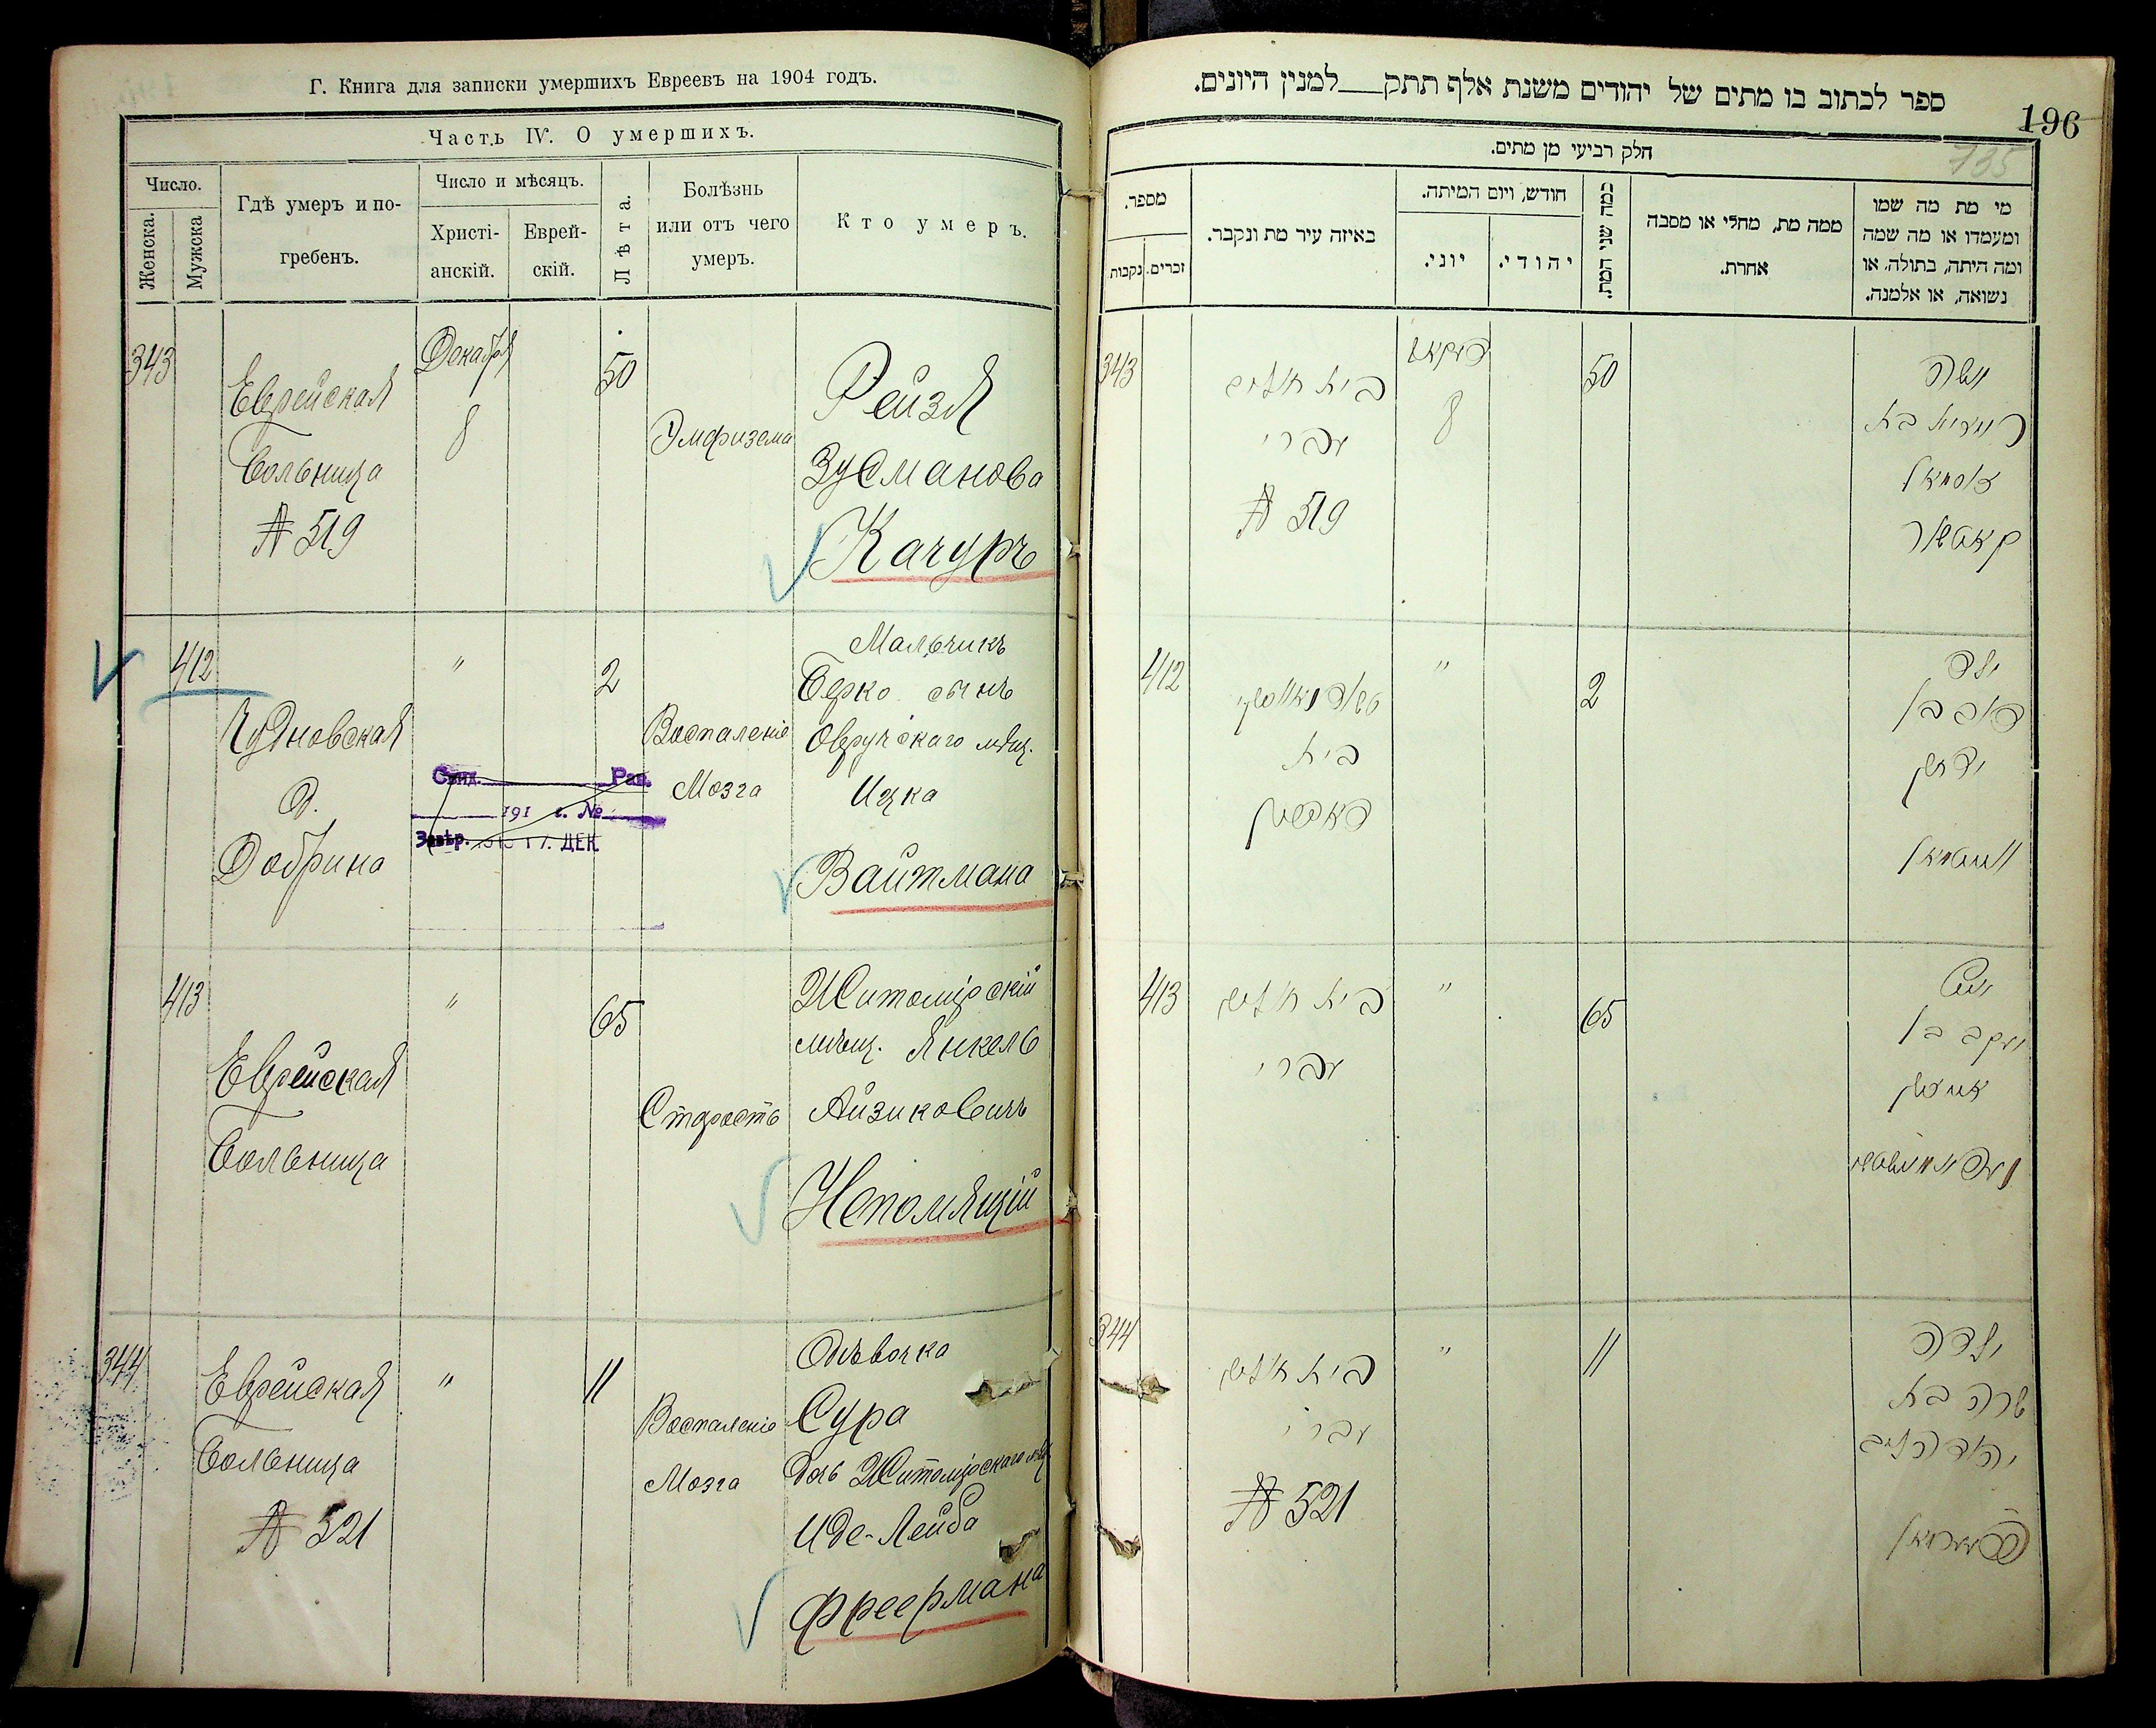 Г. Книга для записки умершихъ Евреевъ на 1904 годъ.
Часть IV. О умершихъ.
Число.
Женска.
Мужска
Гдѣ умеръ и по-
гребенъ.
Число и мѣсяцъ.
Христі-
анскій.
Еврей-
скій.
Лѣта
Болѣзнь
или отъ чего
умеръ.
Кто умеръ.
343
Еврейская
Больница
№ 519
Декабря
8
50
Эмфизема
Рейзя
Зусманова
Качуръ
412
Чудновская
д.
Добрина
"
2
Воспаленіе
Мозга
Мальчикъ
Берко сынъ
Овручскаго мѣщ.
Ицка
Вайтмана
Свид. Рав.
191 г. №
Завѣр. ДЕК.
413
Еврейская
Больница
"
65
Старость
Житомірскій
мѣщ. Янкель
Айзиковичъ
Непомящій
344
Еврейская
Больница
№ 521
"
11
Воспаленіе
Мозга
Дѣвочка
Сура
дочь Житомірскаго мѣщ
Иде-Лейба
Фреермана
ספר לכתוב בו מתים של יהודים משנת אלף תתק למנין היונים.
196
735
חלק רביעי מן מתים.
מספר.
נקבות
זכרים.
באיזה עיר מת ונקבר.
חודש, ויום המיתה.
יוני.
יהודי.
כמה שני המת.
ממה מת, מחלי או מסבה
אחרת.
מי מת מה שמו
ומעמדו או מה שמה
ומה היתה, בתולה, או
נשואה, או אלמנה.
343
בית חולים
עברי
№ 519
8
50
אשה
רייזיא בת
זוסמאן
קאטשור
412
בית
"
2
ילד
בערקא בן
איצק
ווייטמאן
413
בית חולים
עברי
"
65
איש
יעקב בן
אייזיק
344
בית חולים
עברי
№ 521
"
11
ילדה
שרה בת
יהודה ליב